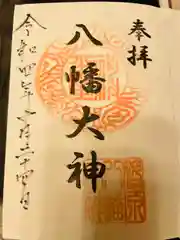 奉拝
八幡大神
令和四年 月二十四日